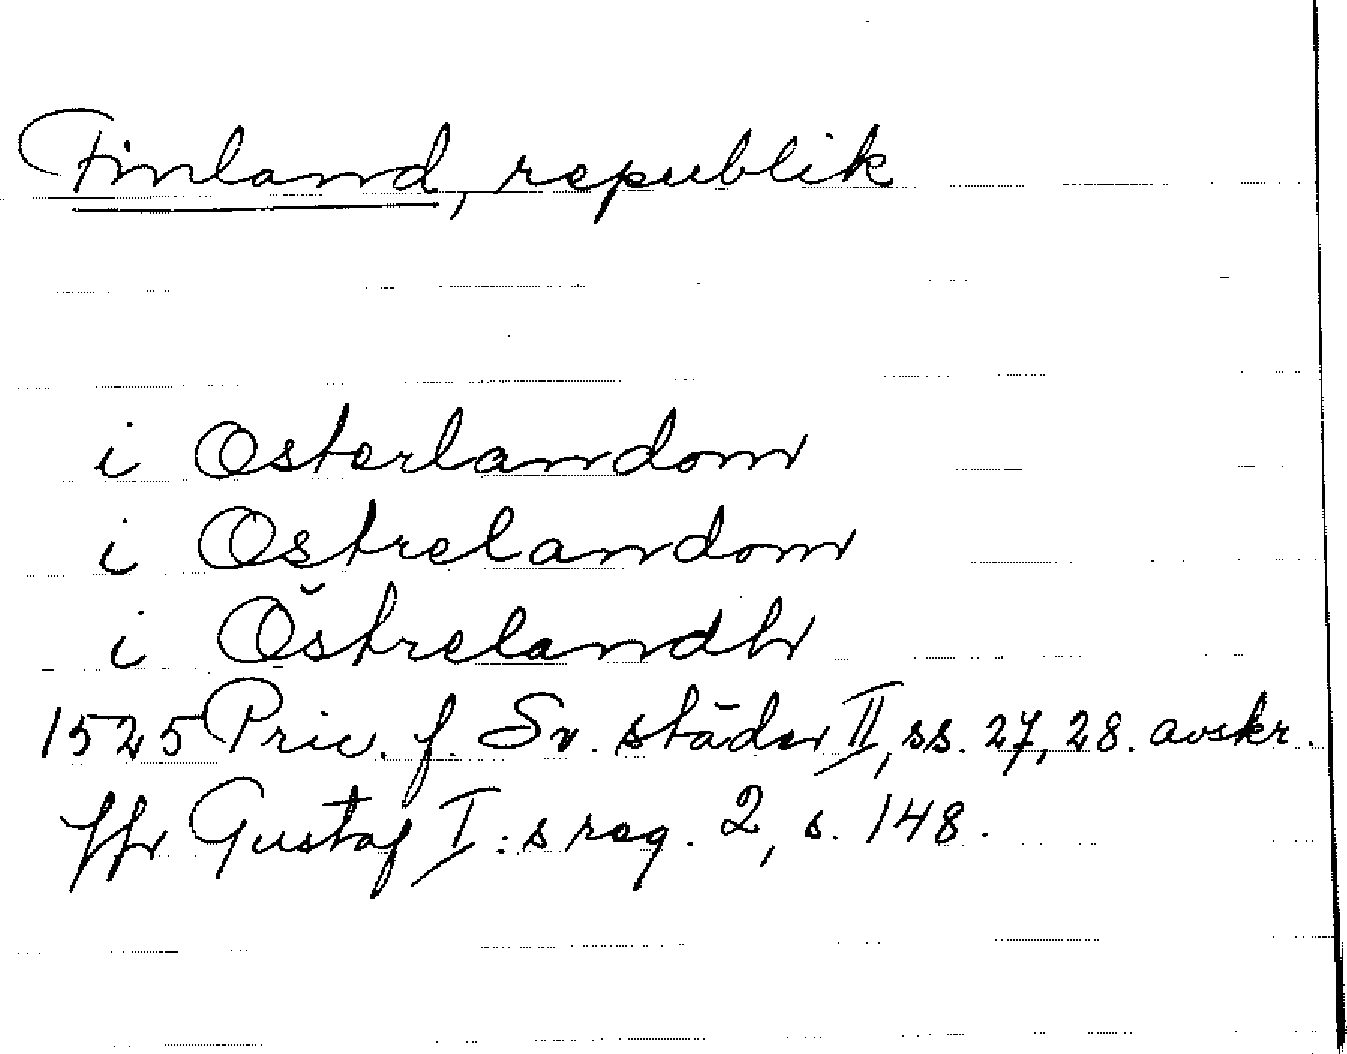 Finland, republik
i Osterlandom
i Ostrelandom
i Ostrelandh
1525 Priv. f. Sv. städer II, ss. 27, 28. avskr.
Jfr Gustaf I:s reg. 2, s. 148.